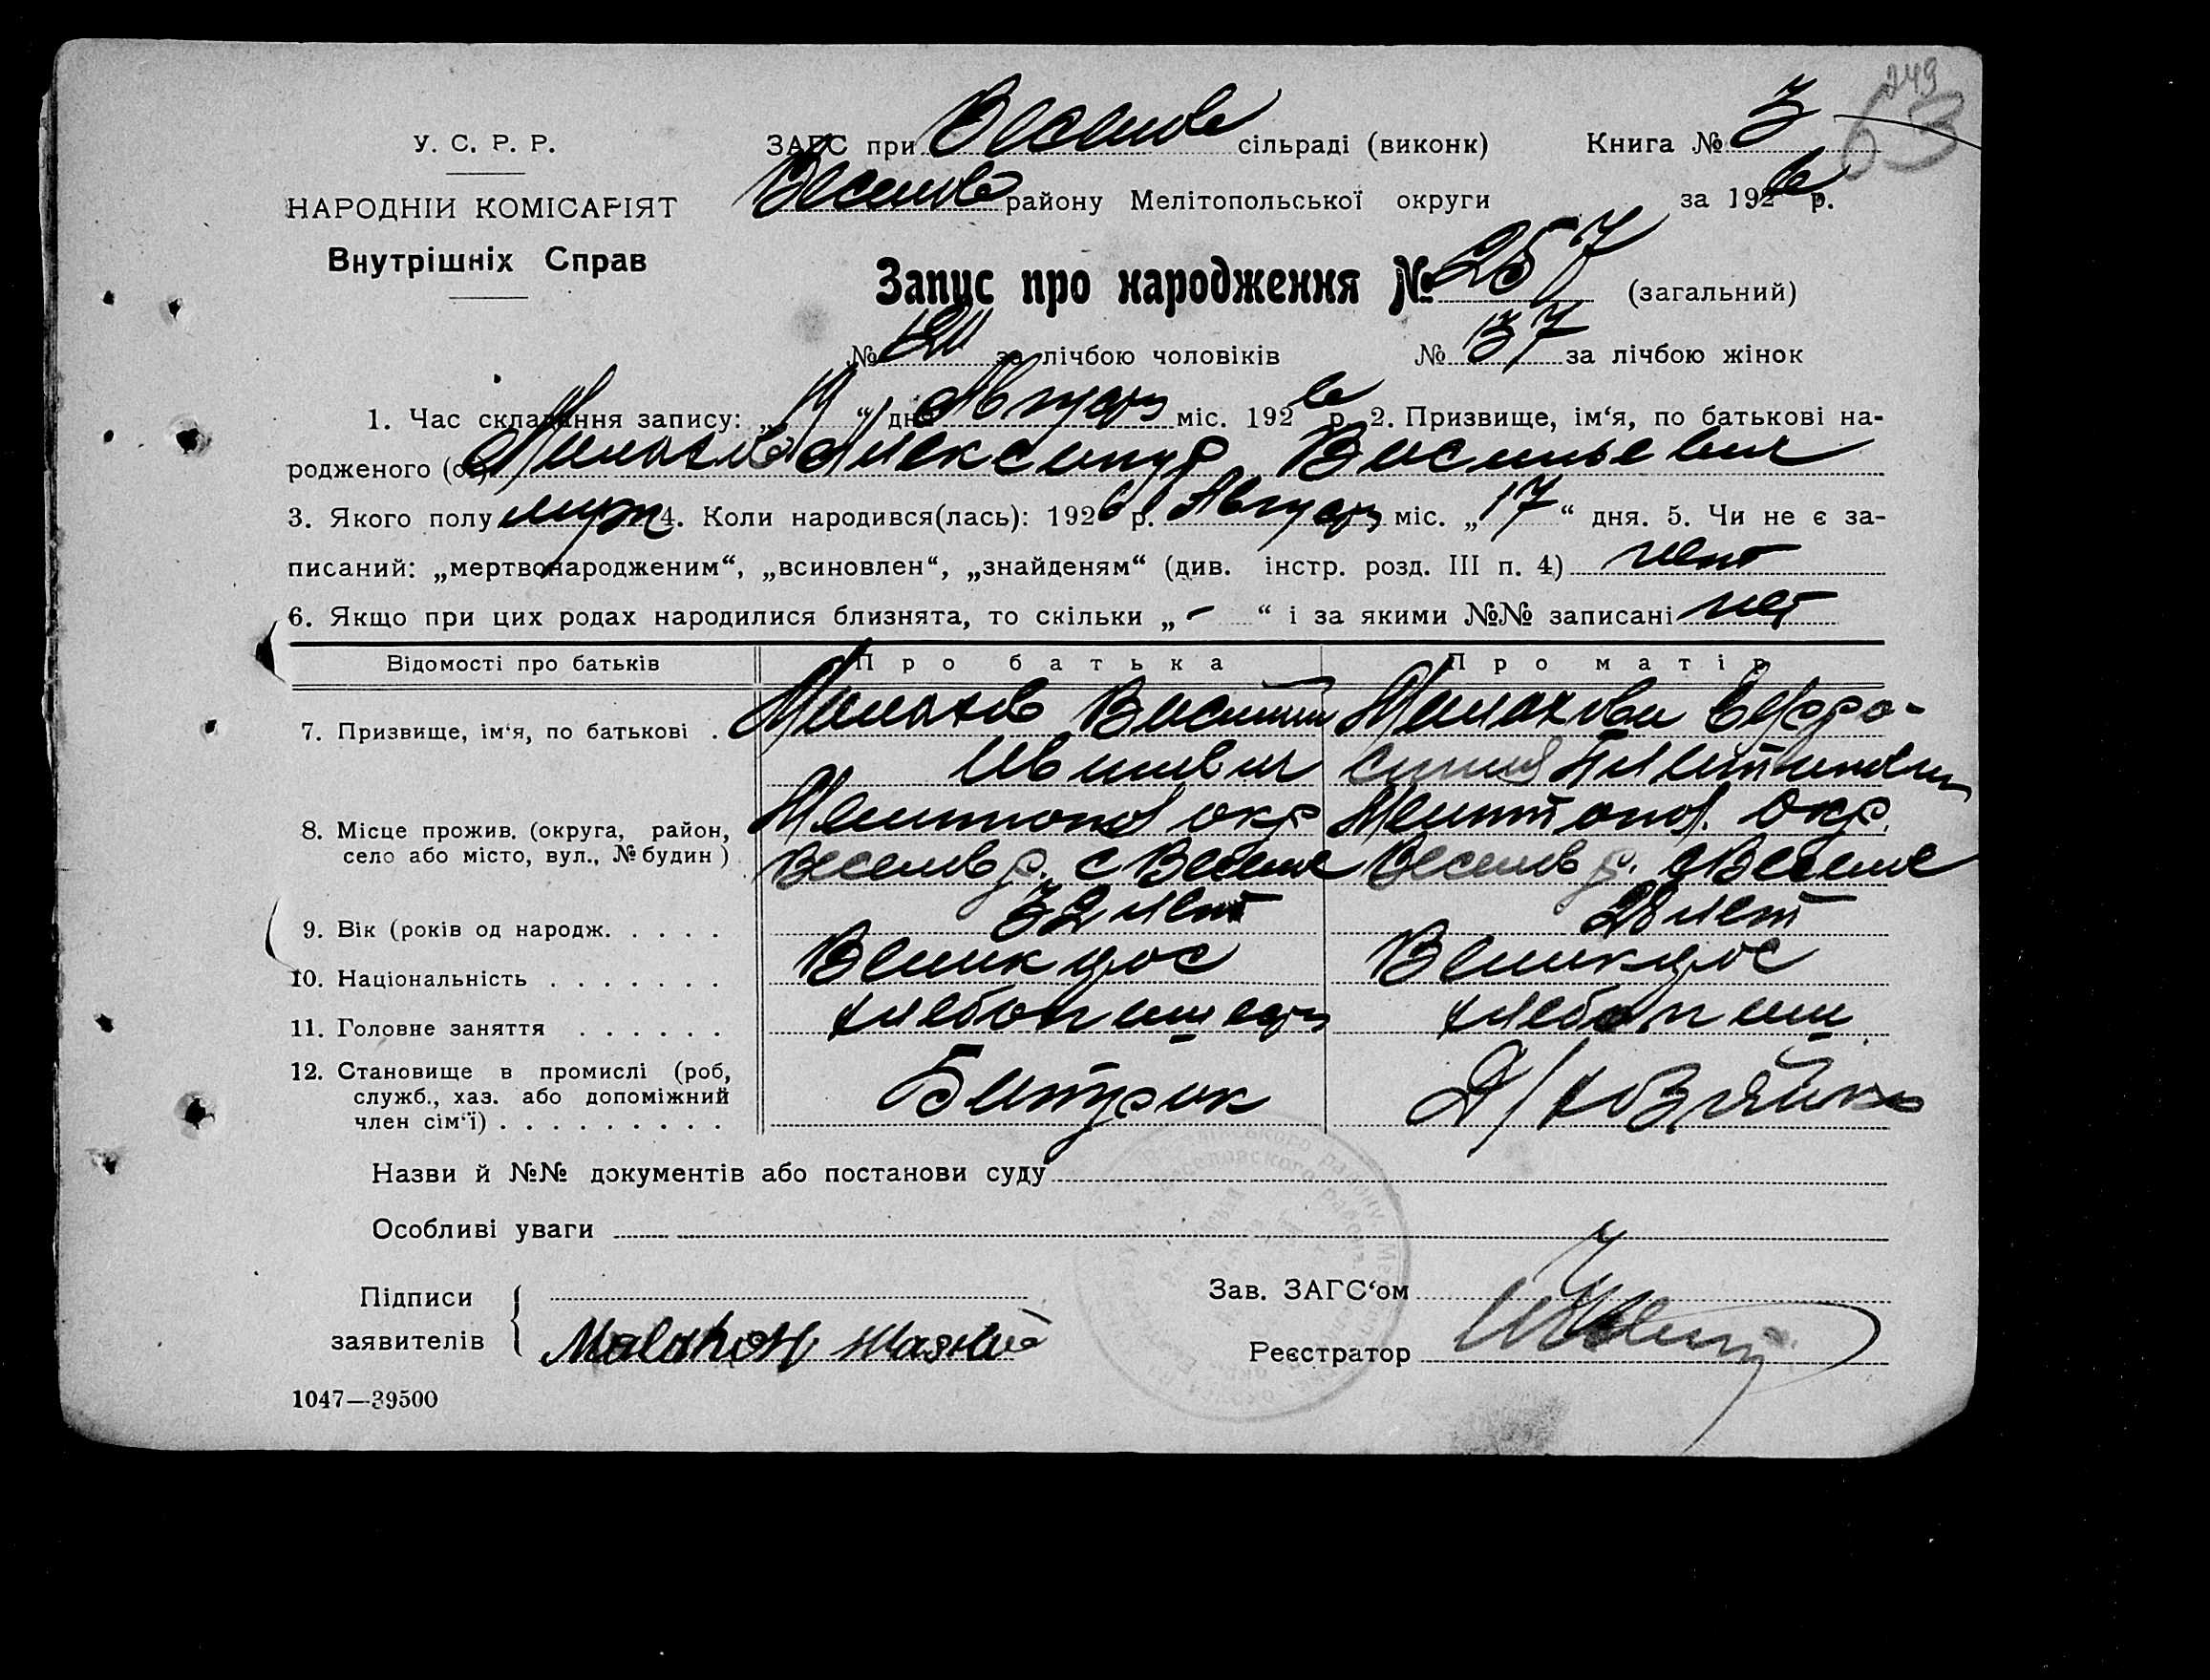 249
63
У. С. Р. Р.
НАРОДНІЙ КОМІСАРІЯТ
Внутрішніх Справ
ЗАГС при Веселов сільраді (виконк) Книга № 3
Веселов району Мелітопольської округи за 1926 р.
Запус про народження № 257 (загальний)
№ 120 за лічбою чоловіків № 137 за лічбою жінок
1. Час складання запису: „19“ дня Августа міс. 1926 р. 2. Призвище, ім‘я, по батькові на-
родженого (ої) Малахов Александр Васильевич
3. Якого полу муж 4. Коли народився(лась): 1926 р. Августа міс. „17“ дня. 5. Чи не є за-
писаний: „мертвонародженим“, „всиновлен“, „знайденям“ (див. інстр. розд. III п. 4) нет
6. Якщо при цих родах народилися близнята, то скільки „-“ і за якими №№ записані нет
Відомості про батьків Про батька Про матір
7. Призвище, ім‘я, по батькові . Малахов Василий Малахова Евфро-
Иванович синия
8. Місце прожив. (округа, район, Мелитопол окр Мелитопол. окр.
село або місто, вул., № будин) Веселов р. с Веселое Веселов р. с Веселое
9. Вік (років од народж. . . . . 32 лет 28 лет
10. Національність . . . . . . . Великорос Великорос
11. Головне заняття . . . . . . хлебопашец хлебопаш
12. Становище в промислі (роб, Батрак Д/хозяйка
служб., хаз. або допоміжний
член сім‘ї) . . . . . . . . .
Назви й №№ документів або постанови суду
Особливі уваги
Підписи Зав. ЗАГС‘ом
заявителів Малахов Реєстратор
1047—39500